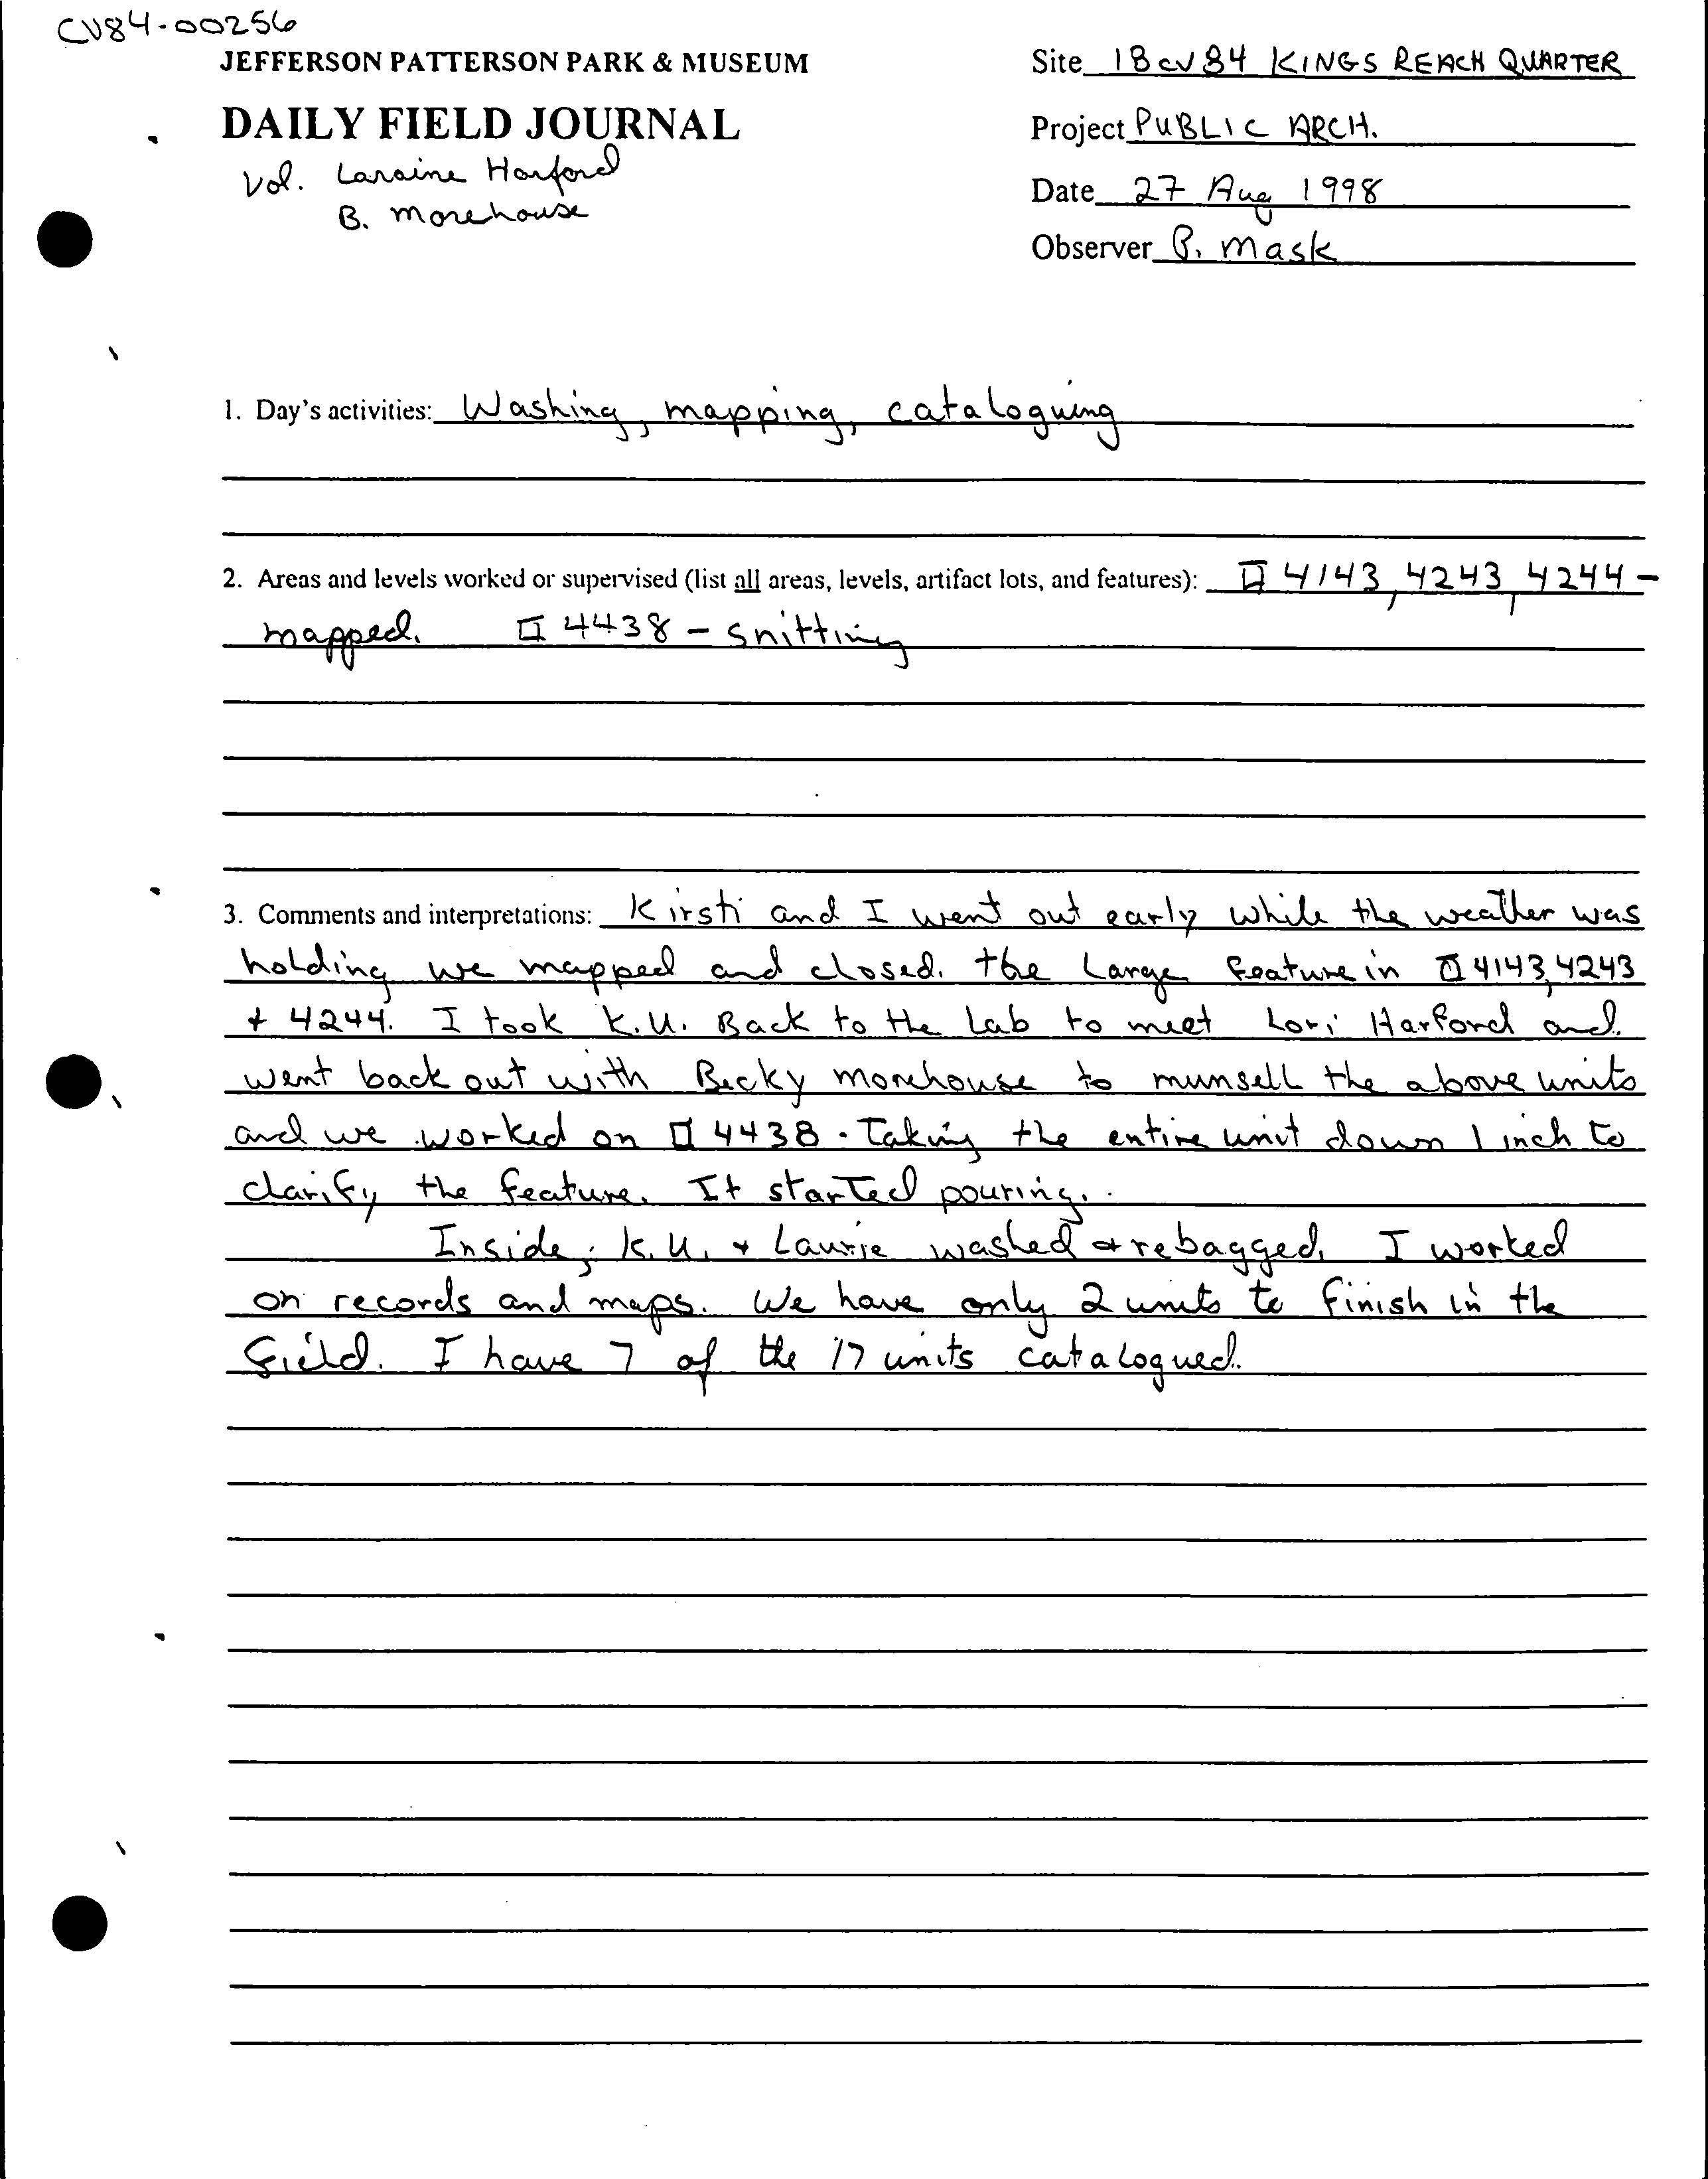 CV84-00256
JEFFERSON PATTERSON PARK & MUSEUM
DAILY FIELD JOURNAL
Vol. Laraine Harford
B. Morehouse
Site 18CV84 KINGS REACH QUARTER
Project PUBLIC ARCH.
Date 27 Aug 1998
Observer P. Mask
1. Day's activities: Washing, mapping, cataloguing
2. Areas and levels worked or supervised (list all areas, levels, artifact lots, and features): 4143, 4243, 4244 -
mapped. 4438 - snitting
3. Comments and interpretations: Kirsti and I went out early while the weather was
holding we mapped and closed. the Large feature in 4143, 4243
+ 4244. I took K.U. Back to the Lab to meet Lori Harford and
went back out with Becky morehouse to munsell the above units
and we worked on 4438 - Taking the entire unit down 1 inch to
clarify the feature. It started pouring.
Inside; K.U. + Laurie washed + rebagged. I worked
on records and maps. We have only 2 units to finish in the
field. I have 7 of the 17 units catalogued.